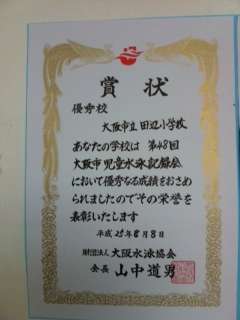 賞状
優秀校
大阪市立 田辺小学校
あなたの学校は 第48回
大阪市 児童水泳記録会
において優秀なる成績をおさめ
られましたのでその栄誉を
表彰いたします
平成25年8月8日
財団法人 大阪水泳協会
会長 山中道男